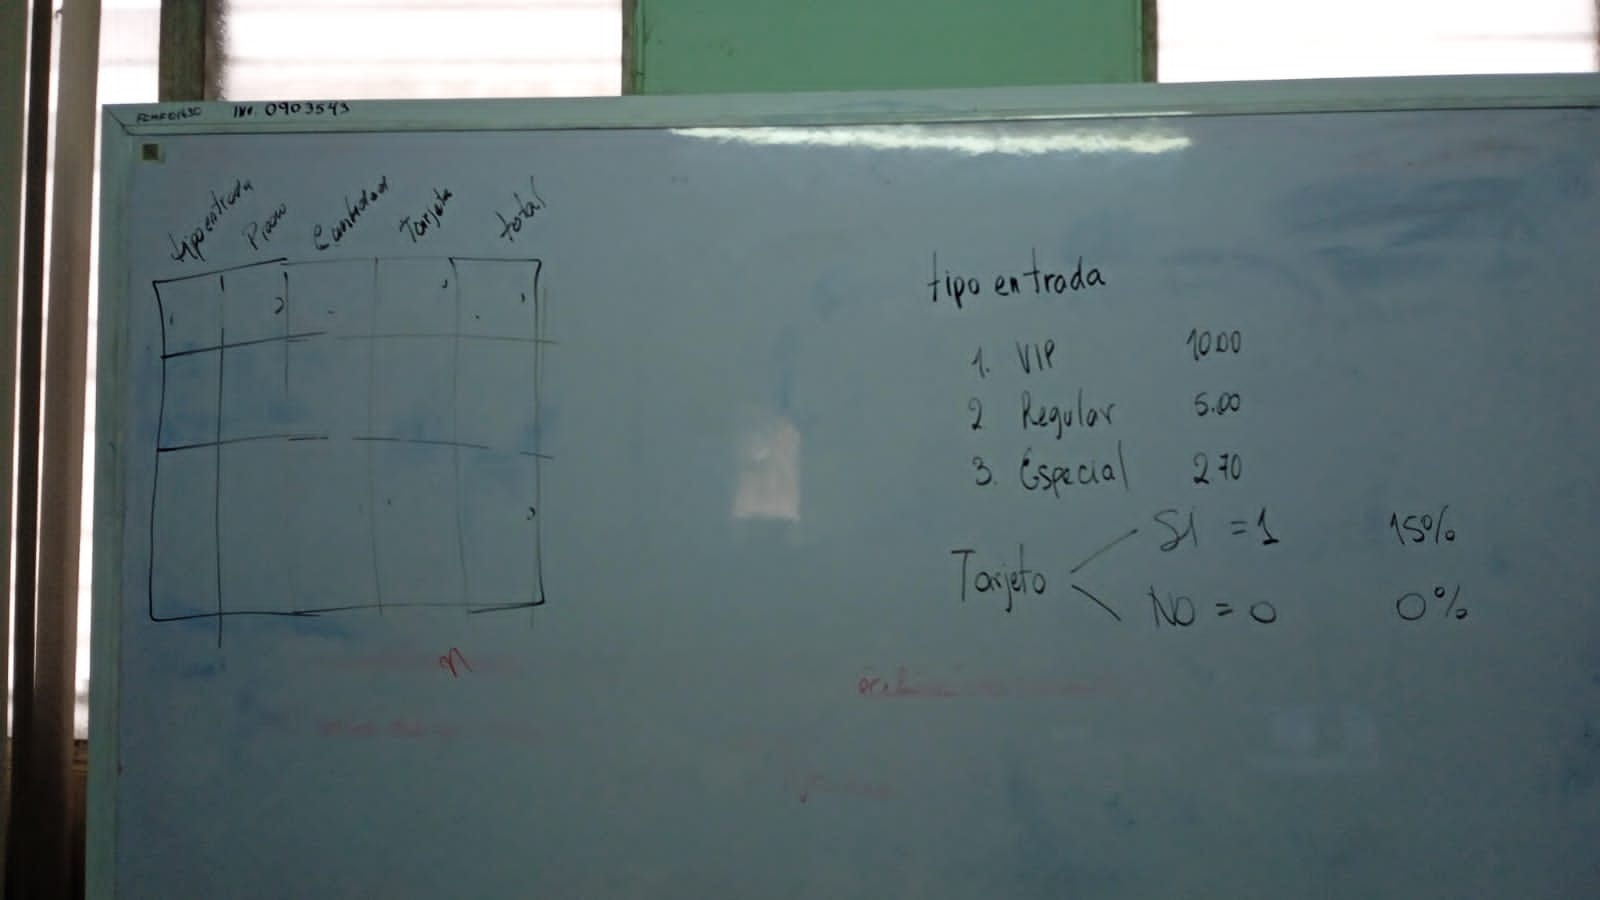 INV. 0903543
tipo entrada Precio Cantidad Tarjeta total
tipo entrada
1. VIP 10.00
2 Regular 5.00
3. Especial 2.70
Tarjeta
SI = 1 15%
NO = 0 0%
n